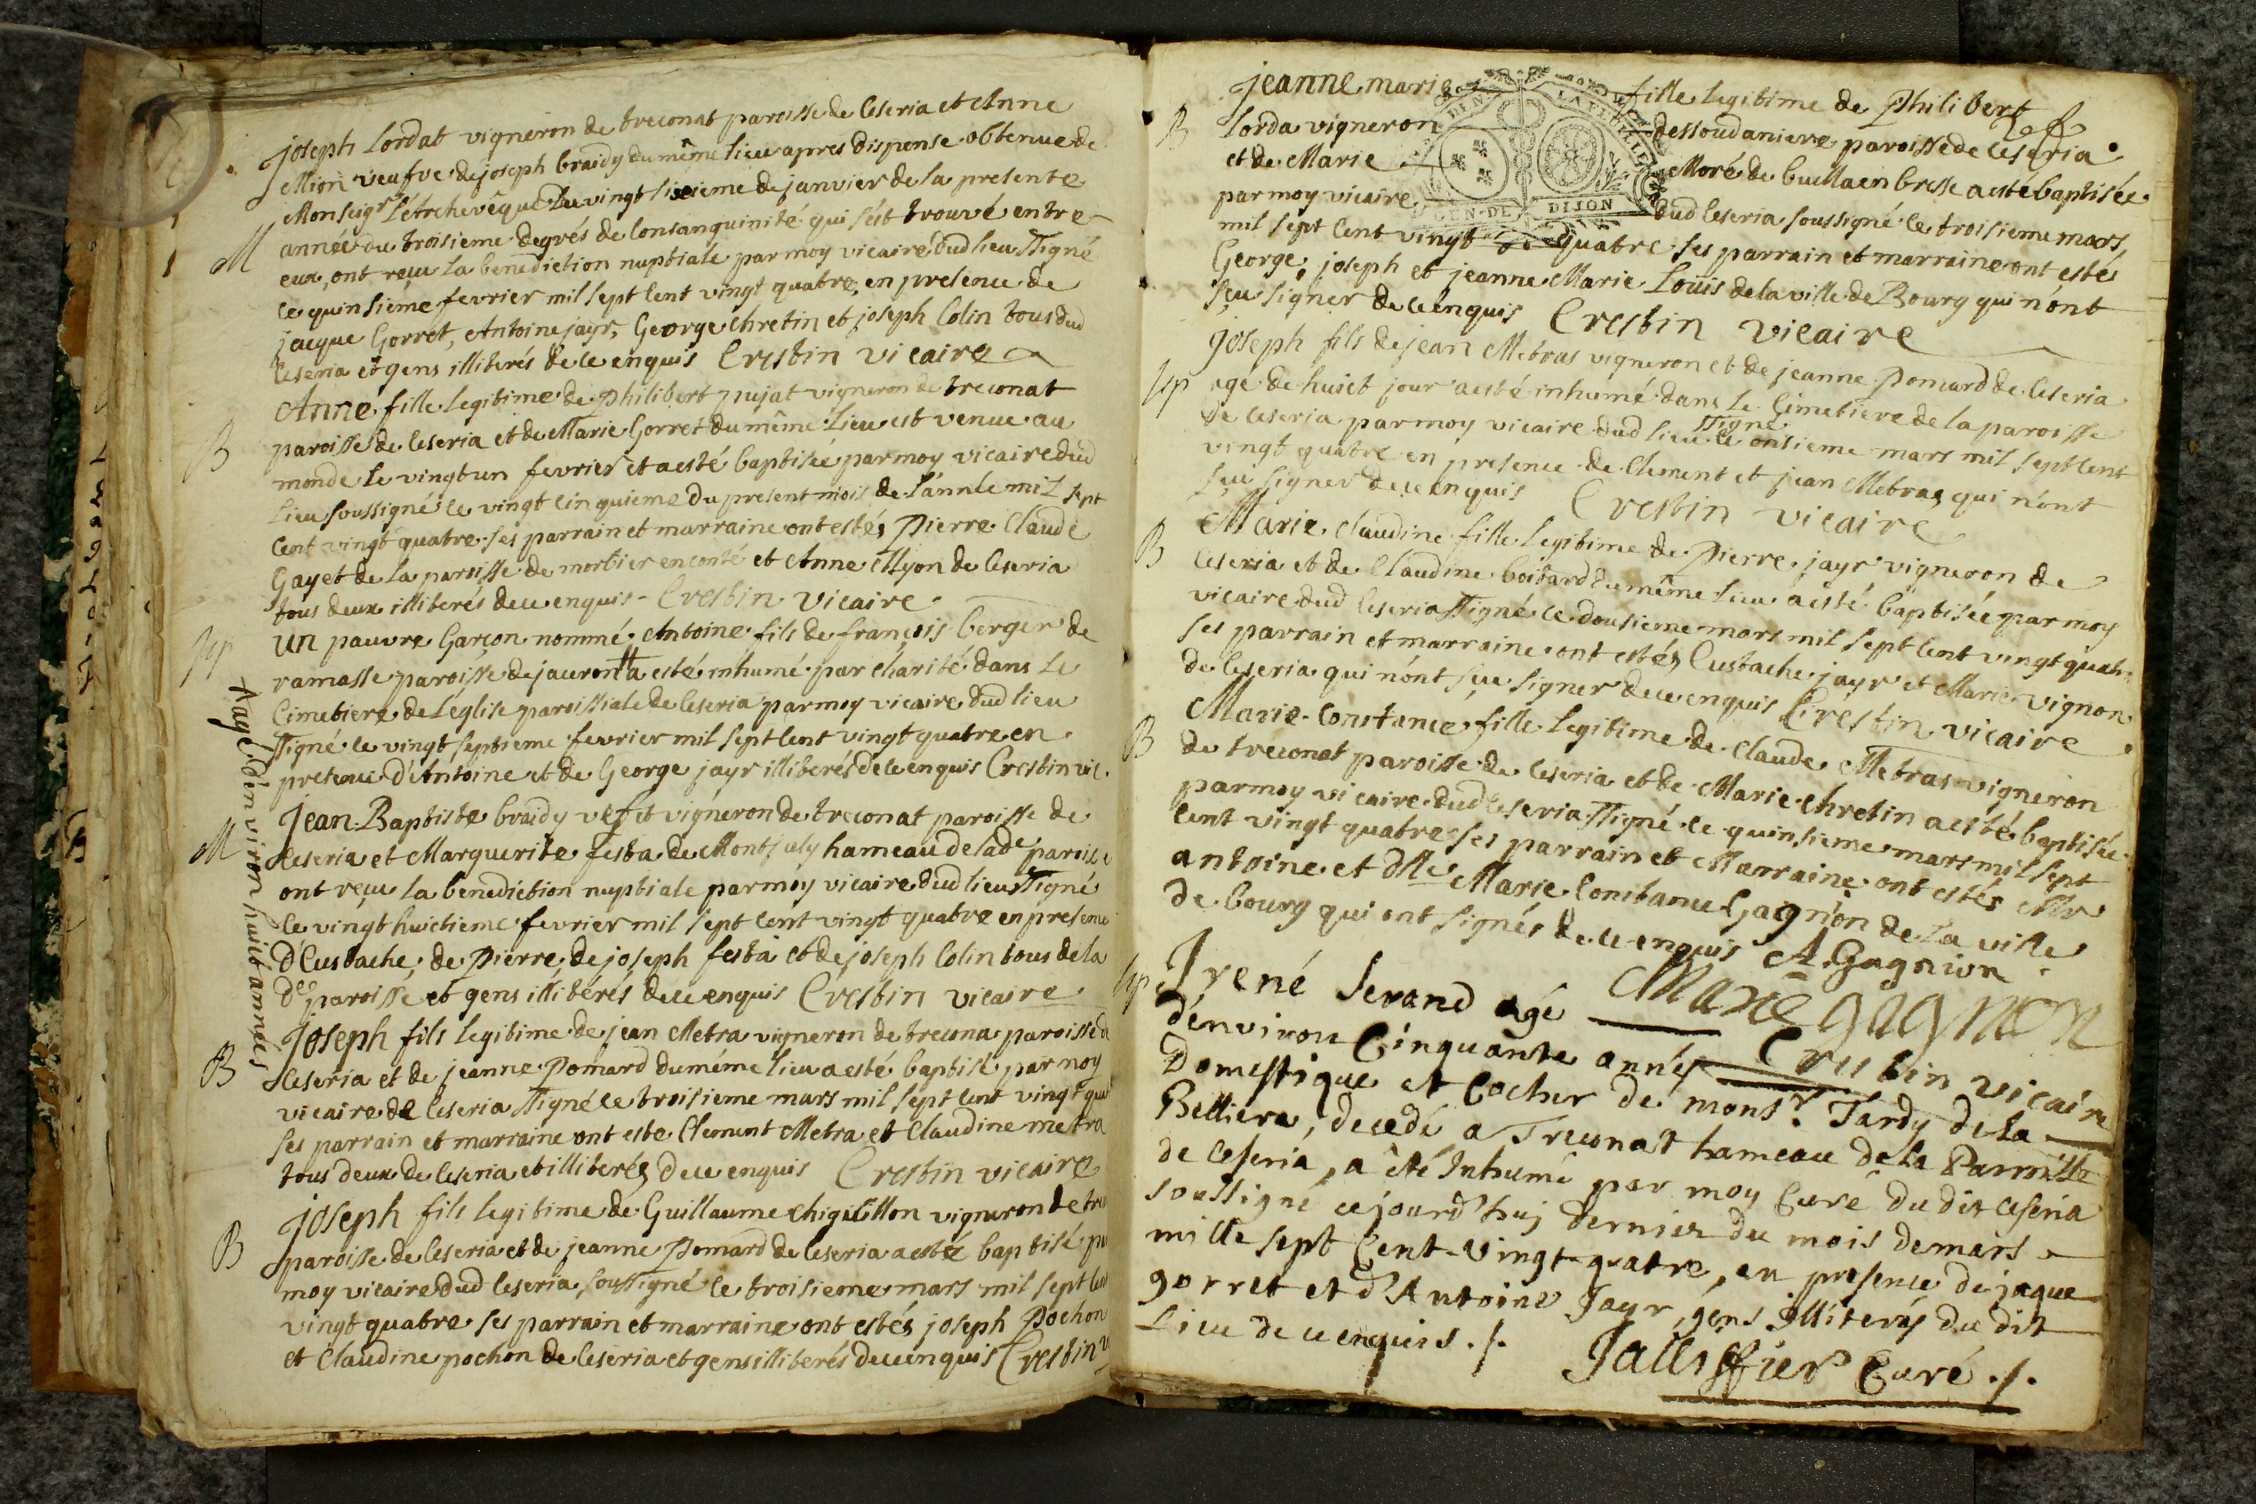 joseph Lordat vigneron de treconat paroisse de Ceseria et Anne
Mion veufve de joseph braidy du même lieu apres dispense obtenue de
Monseigr L'Archevêque du vingt sixieme de janvier de la presente
année du troisieme degrés de Consanguinité qui s'est trouvé entre
M
eux, ont reçu la benediction nuptiale par moy vicaire dud lieu ssigné
ce quinsième fevrier mil sept cent vingt quatre, en presence de
jacque Gorret, Antoine jayr, George chretin et joseph Colin tous dud
Ceseria et gens illiterés de ce enquis Crestin vicaire
Anne fille legitime de Philibert pujat vigneron de treconat
B
paroisse de Ceseria et de Marie Gorret du même Lieu est venue au
monde le vingt un fevrier et a esté baptisée par moy vicaire dud
Lieu soussigné le vingt cinquieme du present mois de l'année mil sept
cent vingt quatre. ses parrain et marraine ont estés Pierre Claude
Gayet de la paroisse de morbier en conté et Anne Myon de Ceseria
tous deux illiterés de ce enquis - Crestin vicaire
Sep
un pauvre Garçon nommé Antoine fils de françois berger de
ramasse paroisse de jaceron # a esté inhumé par charité dans le
Cimetiere de L'église paroissiale de Ceseria par moy vicaire dud lieu
ssigné le vingt septieme fevrier mil sept cent vingt quatre en
presence d'Antoine et de George jayr illiterés de ce enquis Crestin vic.
# agé d'environ huict années
Jean-Baptiste braidy vef et vigneron de treconat paroisse de
M
Ceseria et Marguerite festa de Montjuly hameau de lade paroisse
ont reçu la benediction nuptiale par moy vicaire dud lieu ssigné
le vingt huictieme fevrier mil sept cent vingt quatre en presence
d'Eustache, de Pierre, de joseph festa et de joseph Colin tous de la
dee paroisse et gens illiterés de ce enquis Crestin vicaire
Joseph fils legitime de jean Metra vigneron de trecona paroisse de
B
Ceseria et de jeanne Pomard du même lieu a esté baptisé par moy
vicaire de Ceseria ssigné ce troisieme mars mil sept cent vingt qua
ses parrain et marraine ont esté Clement Metra et Claudine metra
tous deux de Ceseria et illiterés de ce enquis Crestin vicaire
Joseph fils legitime de Guillaume chiguillon vigneron de tre
B
paroisse de Ceseria et de jeanne Pomard de Ceseria a esté baptisé p
moy vicaire dud Ceseria, soussigné le troisieme mars mil sept cen
vingt quatre ses parrain et marraine ont estés joseph Pochon
et Claudine pochon de Ceseria et gens illiterés de ce enquis Crestin v
jeanne marie fille legitime de Philibert
B
Lorda vigneron dessoudaniere paroisse de Ceseria
et de Marie Moré de buella en bresse a esté baptisée
par moy vicaire dud Ceseria soussigné le troisieme mars
mil sept cent vingt quatre ses parrain et marraine ont estés
GEN. DE DIJON
George, joseph et jeanne Marie Loüis de la ville de Bourg qui n'ont
sçu signer de ce enquis Crestin vicaire
joseph fils de jean Metras vigneron et de jeanne Pomard de Ceseria
Sep
agé de huict jour a esté inhumé dans le Cimetiere de la paroisse
de Ceseria par moy vicaire dud lieu ssigné le onsieme mars mil sept cent
vingt quatre en presence de Clement et jean Metras qui n'ont
sçu signer de ce enquis Crestin vicaire
Marie Claudine fille legitime de Pierre jayr vigneron de
B
Ceseria et de Claudine boitard du même lieu a esté baptisée par moy
vicaire dud Ceseria ssigné le dousieme mars mil sept cent vingt quatre
ses parrain et marraine ont estés Eustache jayr et Marie vignon
de Ceseria qui n'ont sçu signer de ce enquis Crestin vicaire
Marie-Constance fille legitime de Claude Metras vigneron
B
de treconat paroisse de Ceseria et de Marie chretin a esté baptisée
par moy vicaire dud Ceseria ssigné le quinsieme mars mil sept
cent vingt quatre ses parrain et Marraine ont estés Mr
antoine et Dlle Marie Constance Gagnion de la ville
de bourg qui ont signés de ce enquis A. Gagnion
Marie gagnon
Crestin vicaire
Sep
Irené Serand agé
d'environ Cinquante années
Domestique et Cocher de monsr. Tardy de la
Belliere, decedé a Treconat hameau de la Parroisse
de Ceseria, a été Inhumé par moy Curé du dit Ceseria
soussigné cejourd'huj dernier du mois de mars
mille sept Cent-vingt-quatre, en presence de jaque
gorret et d'Antoine Jayr, gens illiterés du dit
Lieu de ce enquis ./.
Jallissier Curé ./.